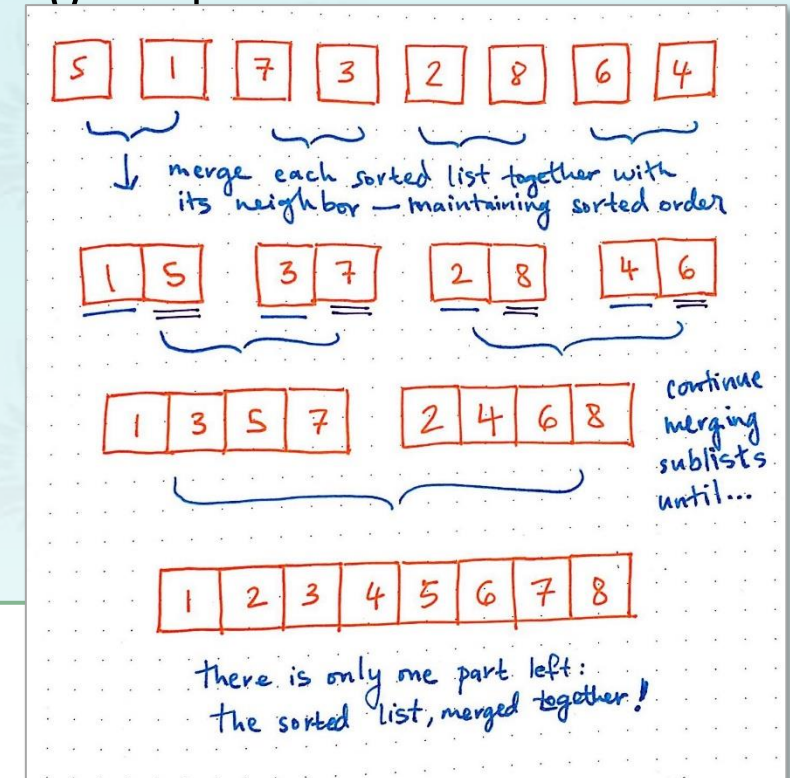 5 1 7 3 2 8 6 4
↓ merge each sorted list together with
its neighbor — maintaining sorted order
1 5 3 7 2 8 4 6
1 3 5 7 2 4 6 8
continue
merging
sublists
until...
1 2 3 4 5 6 7 8
there is only one part left:
the sorted list, merged together!